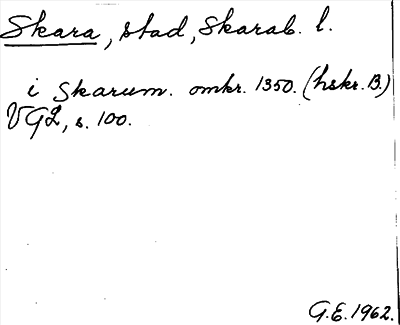 Skara, stad, Skarab. l.
i Skarum. omkr. 1350. (hskr. B.)
VGL, s. 100.
G.E. 1962.